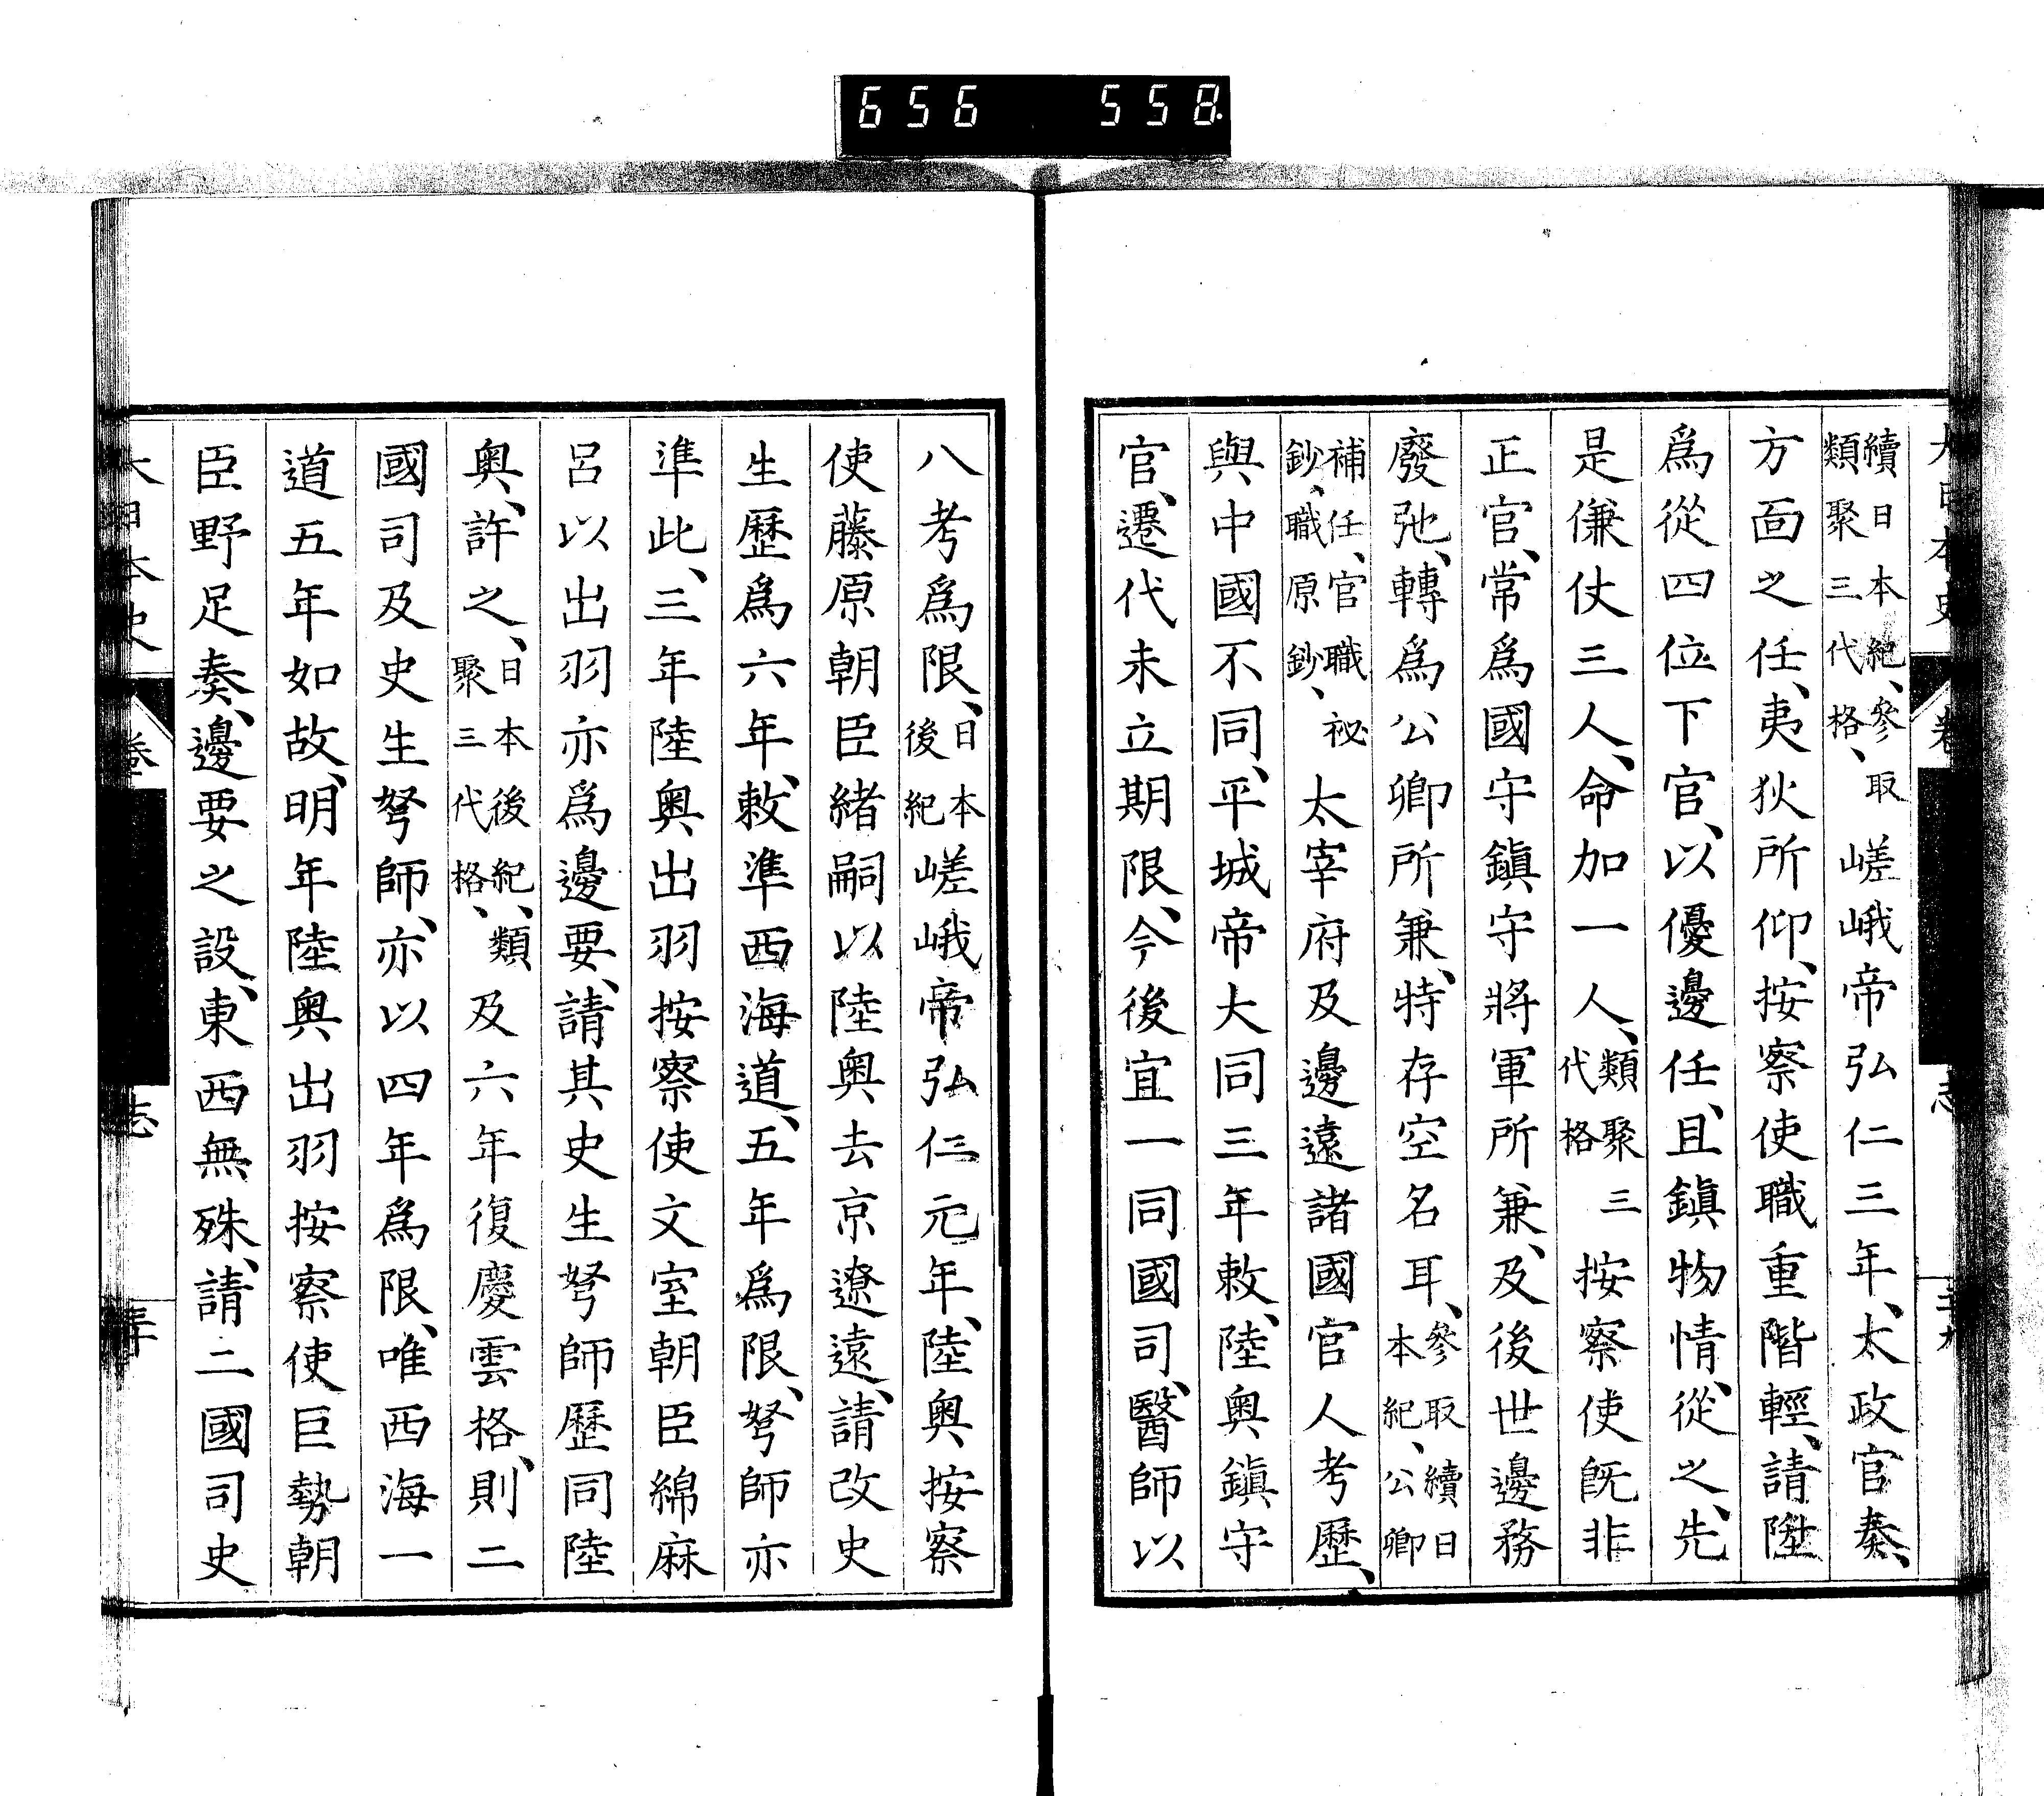 656 558
續日本紀、參取
類聚三代格、嵯峨帝弘仁三年、太政官奏、
方面之任、夷狄所仰、按察使職重階輕、請陞
爲從四位下官、以優邊任、且鎭物情、從之、先
是傔仗三人、命加一人、類聚三代格按察使旣非
正官、常爲國守鎭守將軍所兼、及後世邊務
廢弛、轉爲公卿所兼、特存空名耳、參取續日本紀、公卿
補任、官職祕鈔、職原鈔、太宰府及邊遠諸國官人考歷、
與中國不同、平城帝大同三年敕、陸奧鎭守
官、遷代未立期限、今後宜一同國司、醫師以
八考爲限、日本後紀嵯峨帝弘仁元年、陸奧按察
使藤原朝臣緒嗣以陸奧去京遼遠、請改史
生歷爲六年、敕準西海道、五年爲限、弩師亦
準此、三年陸奧出羽按察使文室朝臣綿麻
呂以出羽亦爲邊要、請其史生弩師歷同陸
奧、許之、日本後紀、類聚三代格、及六年復慶雲格、則二
國司及史生弩師、亦以四年爲限、唯西海一
道五年如故、明年陸奧出羽按察使巨勢朝
臣野足奏、邊要之設、東西無殊、請二國司史
大日本史 卷 志